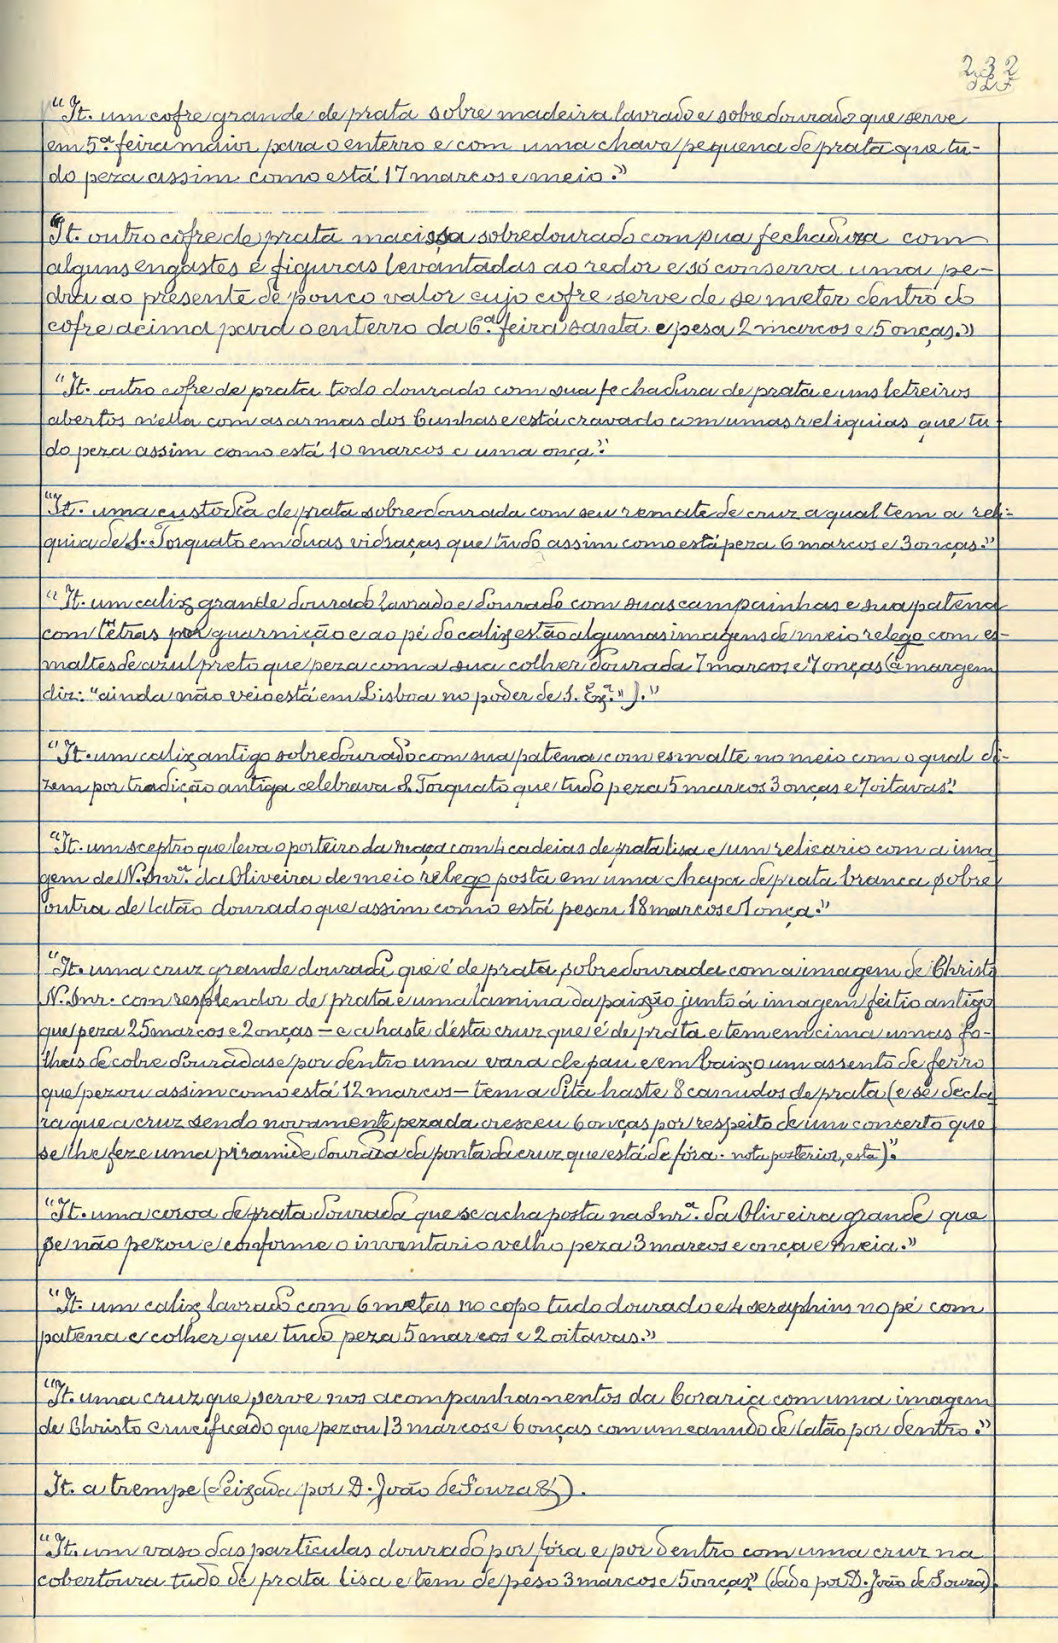 232
"It. um cofre grande de prata sobre madeira lavrado e sobredourado que serve
em 5.ª feira maior para o enterro e com uma chave pequena de prata que tu-
do peza assim como está 17 marcos e meio."
"It. outro cofre de prata macissa sobredourado com sua fechadura com
alguns engastes e figuras levantadas ao redor e só conserva uma pe-
dra ao presente de pouco valor cujo cofre serve de se meter dentro do
cofre acima para o enterro da 6.ª feira santa e pesa 2 marcos e 5 onças."
"It. outro cofre de prata todo dourado com sua fechadura de prata e uns letreiros
abertos n'ella com as armas dos Cunhas e está cravado com umas reliquias que tu-
do peza assim como está 10 marcos e uma onça."
"It. uma custodia de prata sobredourada com seu remate de cruz a qual tem a reli-
quia de S. Torquato em duas vidraças que tudo assim como está peza 6 marcos e 3 onças."
"It. um calix grande dourado lavrado e dourado com suas campainhas e sua patena
com letras por guarnição e ao pé do calix estão algumas imagens de meio relego com es-
maltes de azul preto que peza com a sua colher dourada 7 marcos e 7 onças (á margem
diz: "ainda não veio está em Lisboa no poder de S. Ex.ª")."
"It. um calix antigo sobredourado com sua patena com esmalte no meio com o qual di-
zem por tradição antiga celebrava S. Torquato que tudo peza 5 marcos 3 onças e 7 oitavas."
"It. um sceptro que leva o porteiro da maça com 4 cadeias de prata lisa e um relicario com a ima
gem de N. Snr.ª da Oliveira de meio relego posta em uma chapa de prata branca sobre
outra de latão dourado que assim como está pesou 18 marcos e 1 onça."
"It. uma cruz grande dourada que é de prata sobredourada com a imagem de Christo
N. Snr. com resplendor de prata e uma lamina da paixão junto á imagem feitio antigo
que peza 25 marcos e 2 onças – e a haste d'esta cruz que é de prata e tem em cima umas fo-
lhas de cobre douradas e por dentro uma vara de pau e em baixo um assento de ferro
que pezou assim como está 12 marcos – tem a dita haste 8 canudos de prata (e se decla
ra que a cruz sendo novamente pezada cresceu 6 onças por respeito de um concerto que
se lhe fez e uma piramide dourada da ponta da cruz que está de fóra. nota posterior, esta)."
"It. uma coroa de prata dourada que se acha posta na Snr.ª da Oliveira grande que
se não pezou e conforme o inventario velho peza 3 marcos e onça e meia."
"It. um calix lavrado com 6 metas no copo tudo dourado e 4 seraphins no pé com
patena e colher que tudo peza 5 marcos e 2 oitavas."
"It. uma cruz que serve nos acompanhamentos da Coraria com uma imagem
de Christo crucificado que pezou 13 marcos e 6 onças com um canudo de latão por dentro."
It. a trempe (Leixada por D. João de Souza &).
"It. um vaso das particulas dourado por fóra e por dentro com uma cruz na
cobertoura tudo de prata lisa e tem de peso 3 marcos e 5 onças" (dado por D. João de Souza).